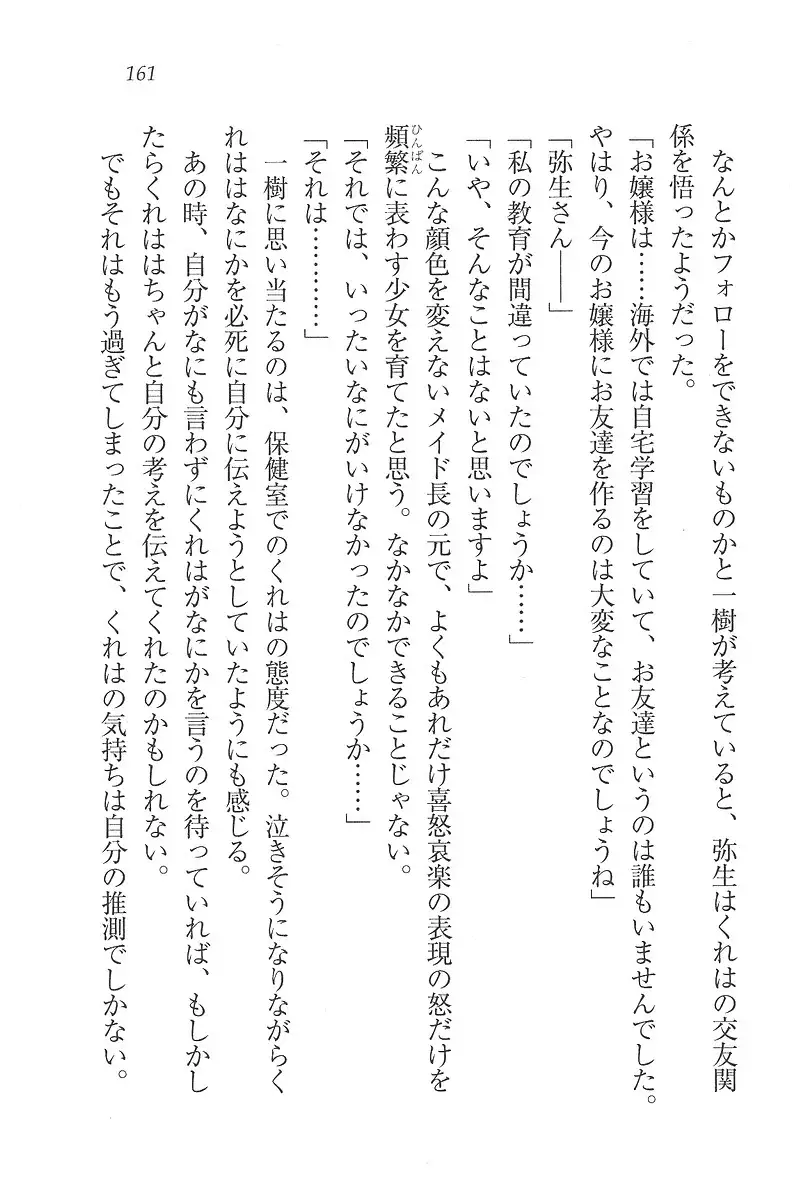 161
なんとかフォローをできないものかと一樹が考えていると、弥生はくれはの交友関
係を悟ったようだった。
「お嬢様は……海外では自宅学習をしていて、お友達というのは誰もいませんでした。
やはり、今のお嬢様にお友達を作るのは大変なことなのでしょうね」
「弥生さん――」
「私の教育が間違っていたのでしょうか……」
「いや、そんなことはないと思いますよ」
こんな顔色を変えないメイド長の元で、よくもあれだけ喜怒哀楽の表現の怒だけを
頻繁ひんぱんに表わす少女を育てたと思う。なかなかできることじゃない。
「それでは、いったいなにがいけなかったのでしょうか……」
「それは…………」
一樹に思い当たるのは、保健室でのくれはの態度だった。泣きそうになりながらく
れははなにかを必死に自分に伝えようとしていたようにも感じる。
あの時、自分がなにも言わずにくれはがなにかを言うのを待っていれば、もしかし
たらくれははちゃんと自分の考えを伝えてくれたのかもしれない。
でもそれはもう過ぎてしまったことで、くれはの気持ちは自分の推測でしかない。